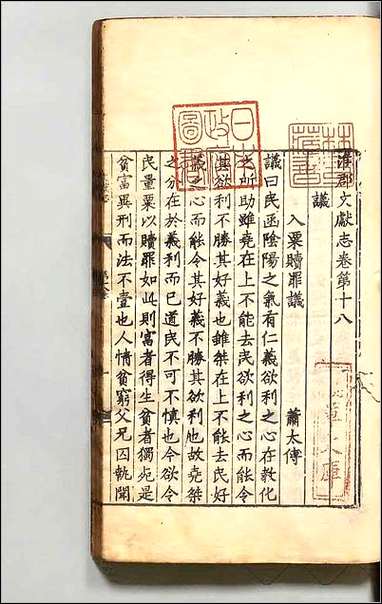 淮郡文獻志卷第十八
議
入粟贖罪議
蕭太傅
議曰民函陰陽之氣有仁義欲利之心在教化
之所助雖堯在上不能去民欲利之心而能令
其欲利不勝其好義也雖桀在上不能去民好
義之心而能令其好義不勝其欲利也故堯桀
之分在於義利而已道民不可不慎也今欲令
民量粟以贖罪如此則富者得生貧者獨死是
貧富異刑而法不壹也人情貧窮父兄囚執聞
日本
政府
圖書